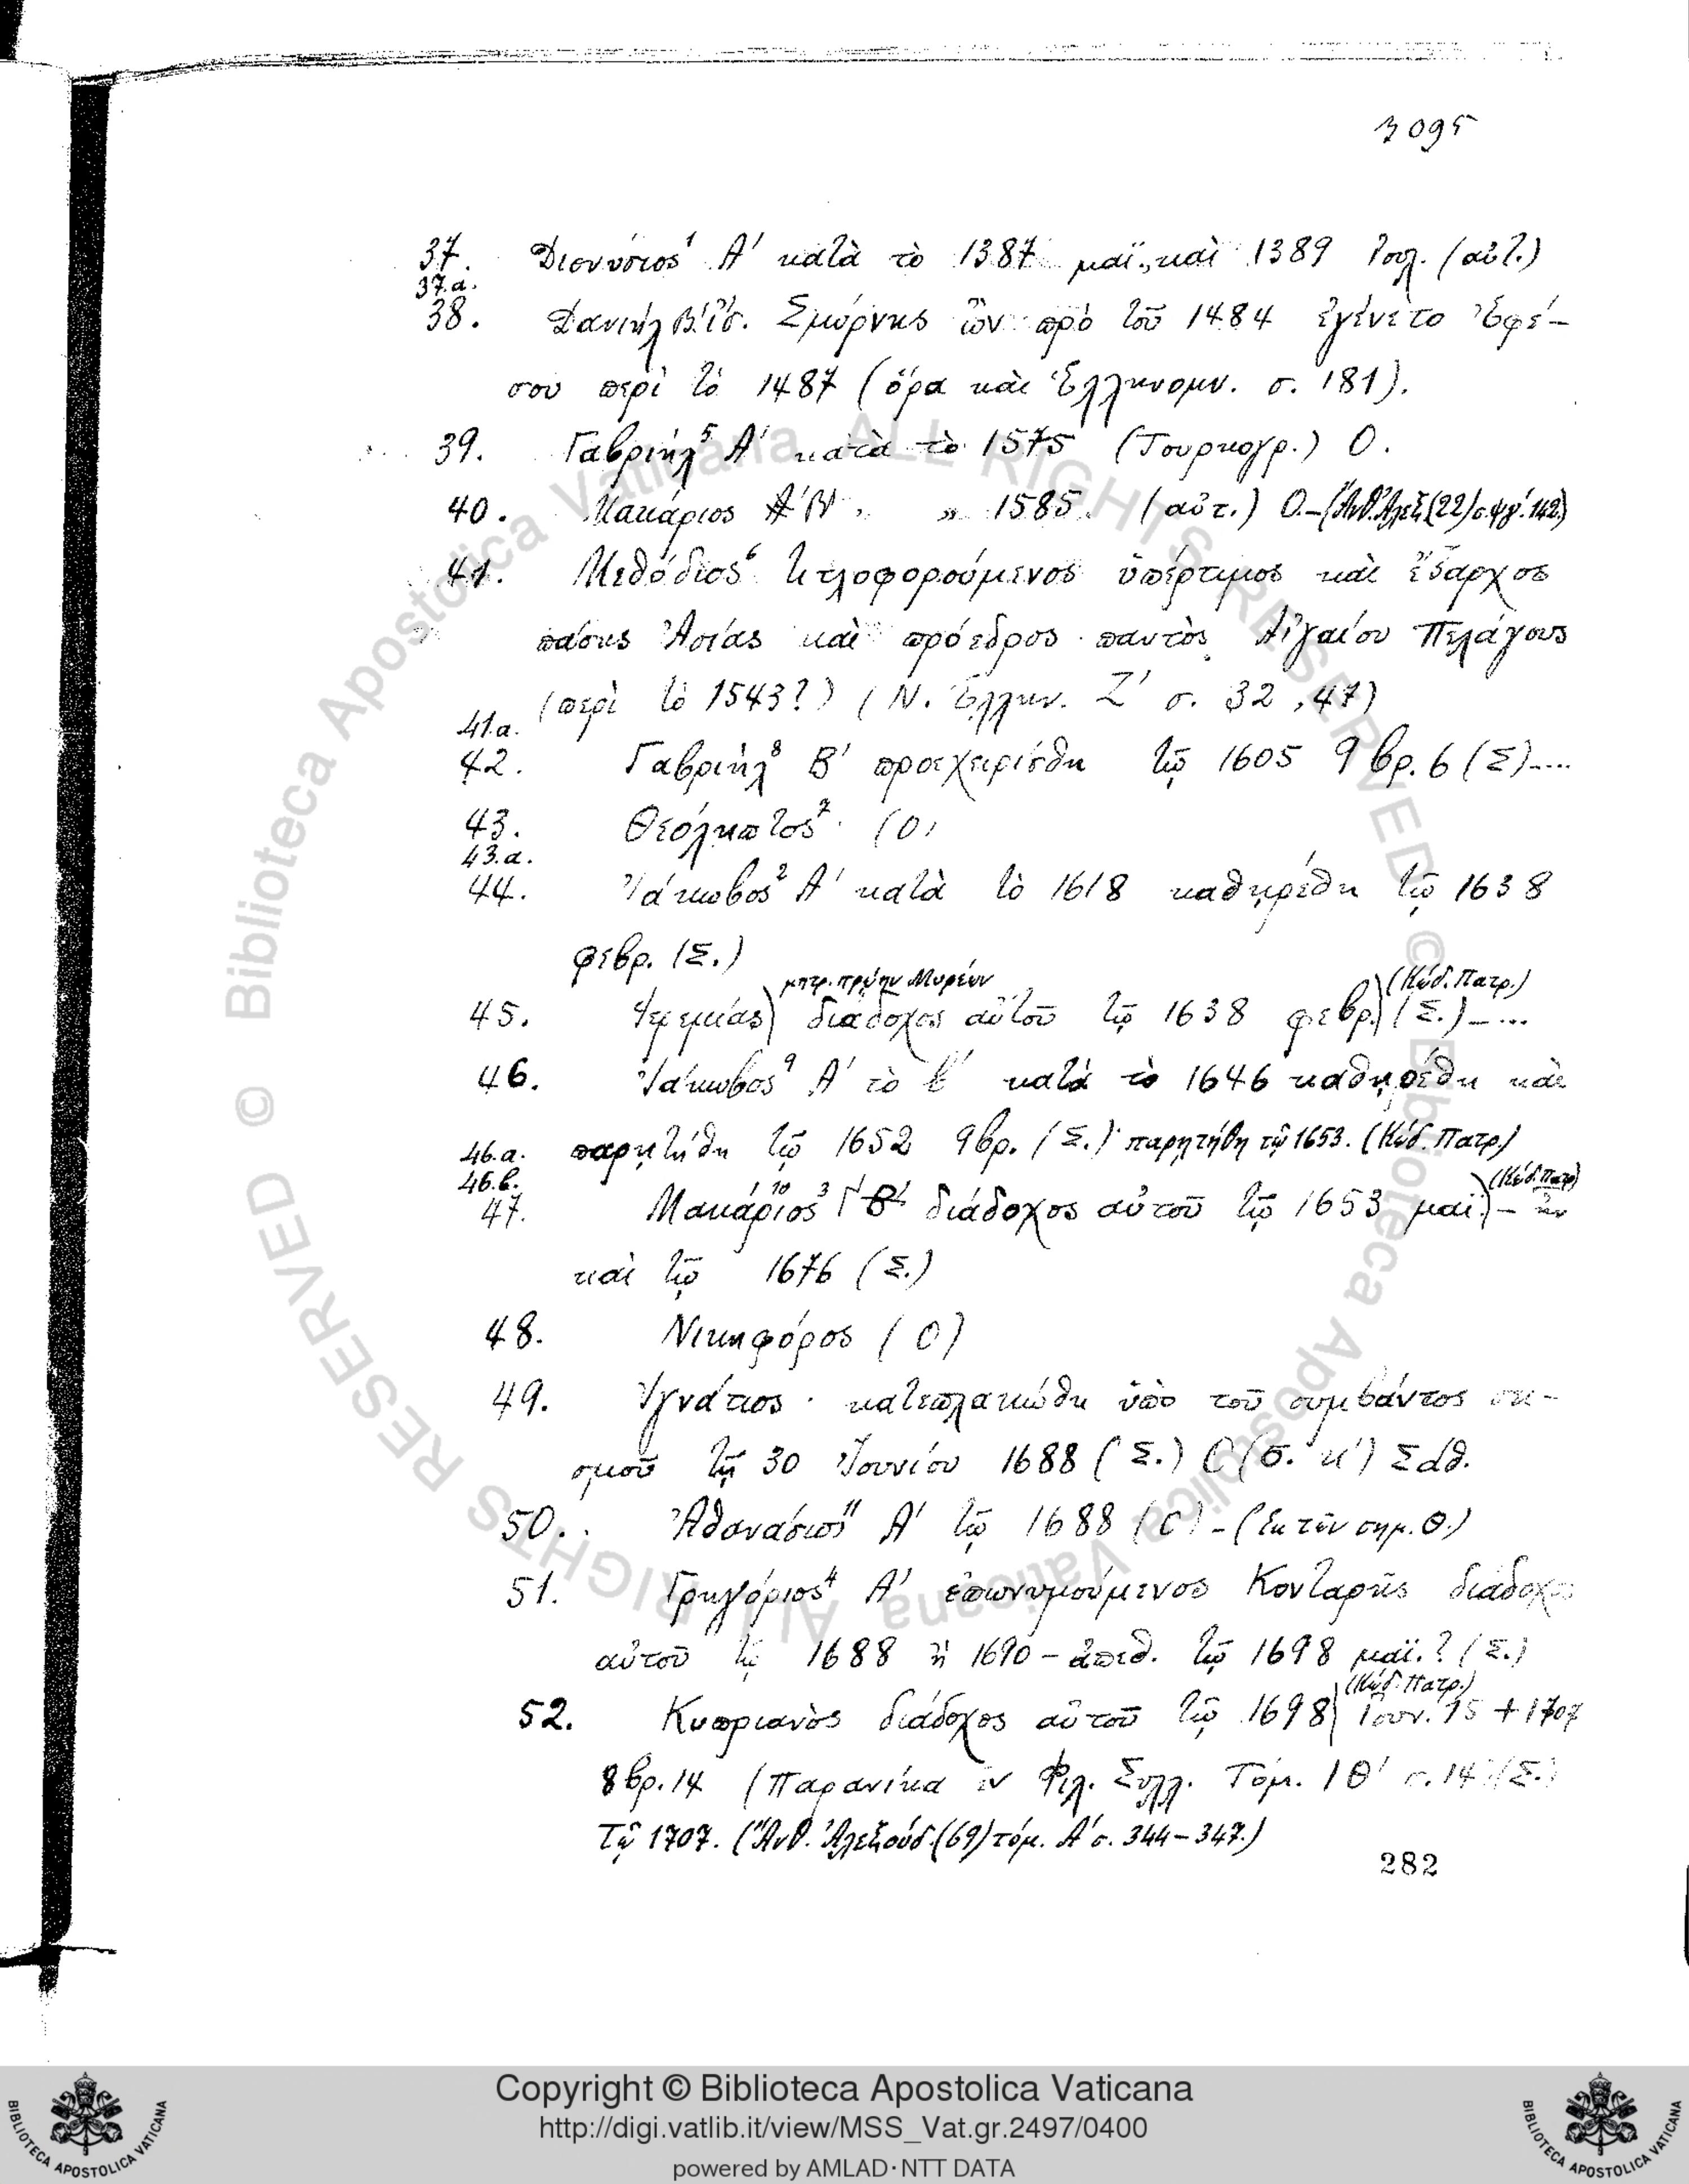 3095
37. Διονύσιος¹ Α' κατὰ τὸ 1387 μαϊ., καὶ 1389 Ἰουλ. (αὐτ.)
37.α.
38. Δανιὴλ Β' Σμύρνης ὢν πρὸ τοῦ 1484 ἐγένετο Ἐφέ-
σου περὶ τὸ 1487 (ὅρα καὶ Ἑλληνομν. σ. 181).
39. Γαβριήλ⁵ Α' κατὰ τὸ 1575 (Τουρκογρ.) Ο.
40. Μακάριος Β' » 1585. (αὐτ.) Ο.–(Ἀνθ. Ἀλεξ. (22) 142)
41. Μεθόδιος⁶ τιτλοφορούμενος ὑπέρτιμος καὶ ἔξαρχος
πάσης Ἀσίας καὶ πρόεδρος παντὸς Αἰγαίου Πελάγους
(περὶ τὸ 1543?) (Ν. Ἑλλην. Ζ' σ. 32, 47)
41.α.
42. Γαβριήλ⁸ Β' προεχειρίσθη τῷ 1605 9βρ. 6 (Σ)....
43. Θεόληπτος⁷ (Ο)
43.α.
44. Ἰάκωβος² Α' κατὰ τὸ 1618 καθῃρέθη τῷ 1638
φεβρ. (Σ.)
μητρ. πρώην Μυρέων (Κώδ. Πατρ.)
45. Ἱερεμίας διάδοχος αὐτοῦ τῷ 1638 φεβρ. (Σ.)–...
46. Ἰάκωβος⁹ Α' τὸ β' κατὰ τὸ 1646 καθῃρέθη καὶ
46.α. παρῃτήθη τῷ 1652 9βρ. (Σ.) παρῃτήθη τῷ 1653. (Κώδ. Πατρ.)
46.β. (Κώδ. Πατρ)
47. Μακάριος¹⁰ ³ Γ' Β' διάδοχος αὐτοῦ τῷ 1653 μαϊ. – ἦν
καὶ τῷ 1676 (Σ.)
48. Νικηφόρος (Ο)
49. Ἰγνάτιος · κατεπλακώθη ὑπὸ τοῦ συμβάντος σει-
σμοῦ τῇ 30 Ἰουνίου 1688 (Σ.) Ο (σ. κ') Σάθ.
50. Ἀθανάσιος¹¹ Α' τῷ 1688 (Ο) – (Ἐκ τῶν σημ. Θ.)
51. Γρηγόριος⁴ Α' ἐπωνυμούμενος Κονταρῆς διάδοχος
αὐτοῦ τῷ 1688 ἢ 1690 – ἀπεθ. τῷ 1698 μαϊ.? (Σ.)
(Κώδ. Πατρ.)
52. Κυπριανὸς διάδοχος αὐτοῦ τῷ 1698 Ἰουν. 15 + 1707
8βρ. 14 (Παρανίκα ἐν Φιλ. Συλλ. Τόμ. ΙΘ' σ. 14 (Σ.)
Τῷ 1707. (Ἀνθ. Ἀλεξούδ. (69) τόμ. Α' σ. 344–347.)
282
© Biblioteca Apostolica Vaticana ALL RIGHTS RESERVED © Biblioteca Apostolica Vaticana ALL RIGHTS RESERVED
Copyright © Biblioteca Apostolica Vaticana
http://digi.vatlib.it/view/MSS_Vat.gr.2497/0400
powered by AMLAD·NTT DATA
BIBLIOTECA APOSTOLICA VATICANA
BIBLIOTECA APOSTOLICA VATICANA